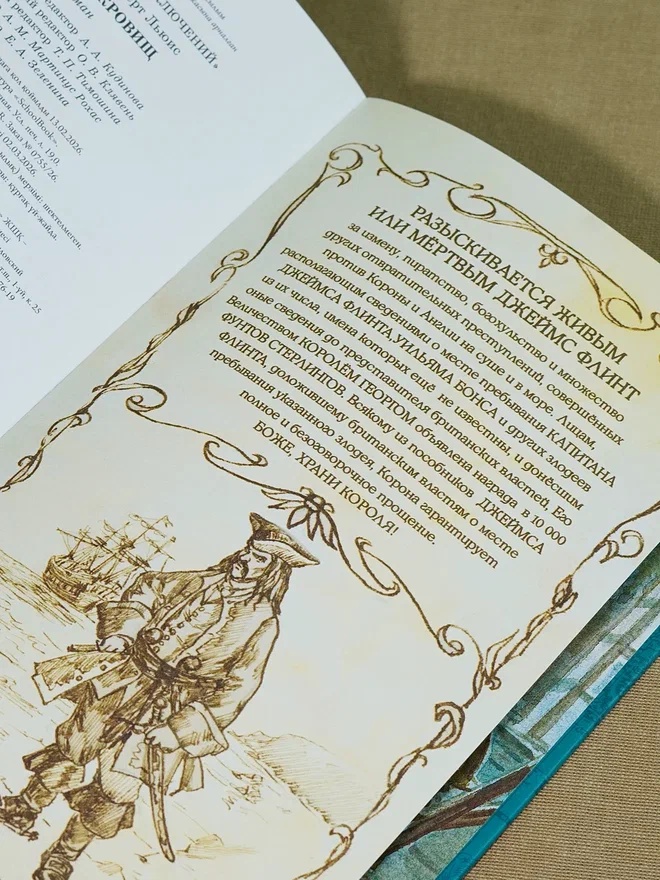 КЛЮЧЕНИЙ»
ерт Льюис
КРОВИЩ
редактор А. А. Кудинова
редактор О. В. Клювень
редактор Т. П. Тимошина
А. М. Мартинус Рохас
Е. А. Зеленина
13.02.2026.
«SchoolBook».
Усл. печ. л. 19,0.
Заказ № 0755/26.
02.03.2026.
мерзімі: шектелмеген.
РАЗЫСКИВАЕТСЯ ЖИВЫМ
ИЛИ МЁРТВЫМ ДЖЕЙМС ФЛИНТ
за измену, пиратство, богохульство и множество
других отвратительных преступлений, совершённых
против Короны и Англии на суше и в море. Лицам,
располагающим сведениями о месте пребывания КАПИТАНА
ДЖЕЙМСА ФЛИНТА УИЛЬЯМА БОНСА и других злодеев
из их числа, имена которых ещё не известны, и донёсшим
оные сведения до представителя британских властей Его
Величеством КОРОЛЁМ ГЕОРГОМ объявлена награда в 10 000
ФУНТОВ СТЕРЛИНГОВ. Всякому из пособников ДЖЕЙМСА
ФЛИНТА, доложившему британским властям о месте
пребывания указанного злодея, Корона гарантирует
полное и безоговорочное прощение.
БОЖЕ, ХРАНИ КОРОЛЯ!